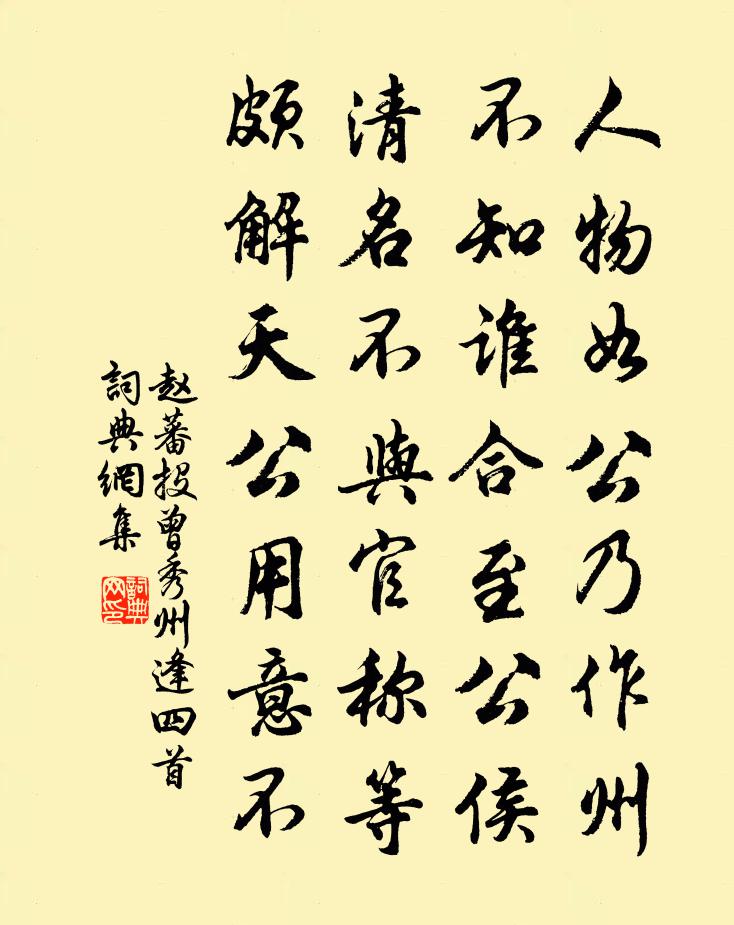 人物如公乃作州
不知谁合至公侯
清名不與官称等
頗解天公用意不
赵蕃投曾秀州逢四首
詞典網集
詞典网印